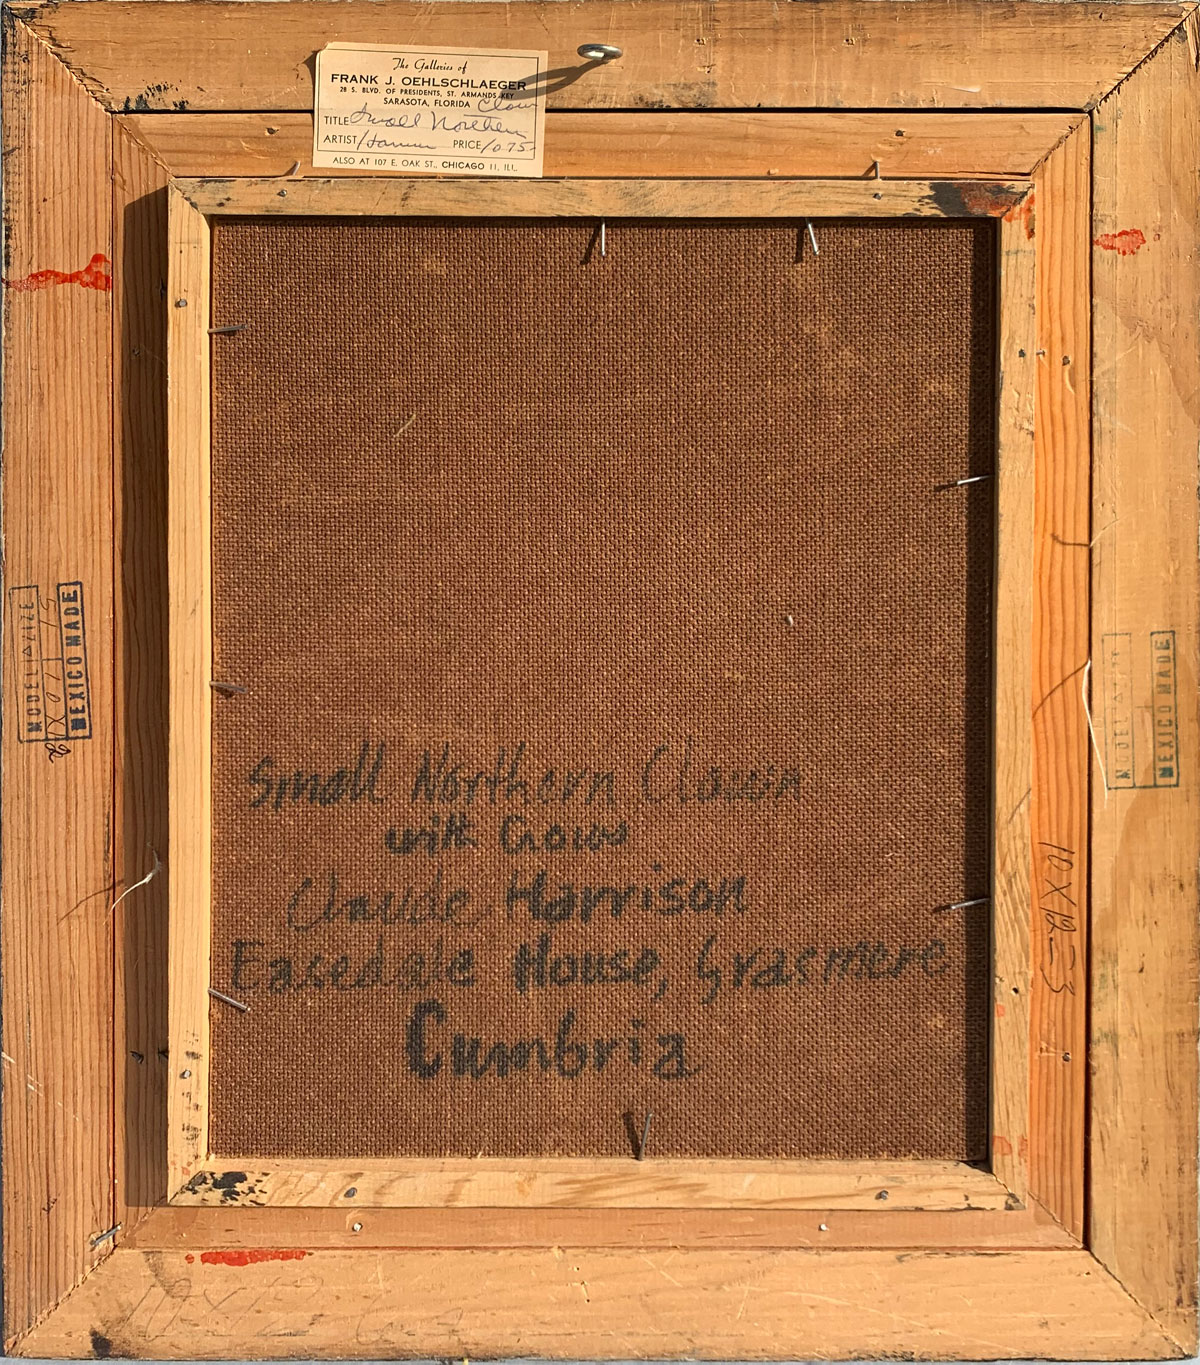 The Galleries of
FRANK J. OEHLSCHLAEGER
28 S. BLVD. OF PRESIDENTS, ST. ARMANDS KEY
SARASOTA, FLORIDA Clown
TITLE Small Northern
ARTIST PRICE 1075-
ALSO AT 107 E. OAK ST., CHICAGO 11, ILL.
MEXICO MADE
MEXICO MADE
10 X 12
Small Northern Clown
with Crows
Claude Harrison
Easedale House, Grasmere
Cumbria